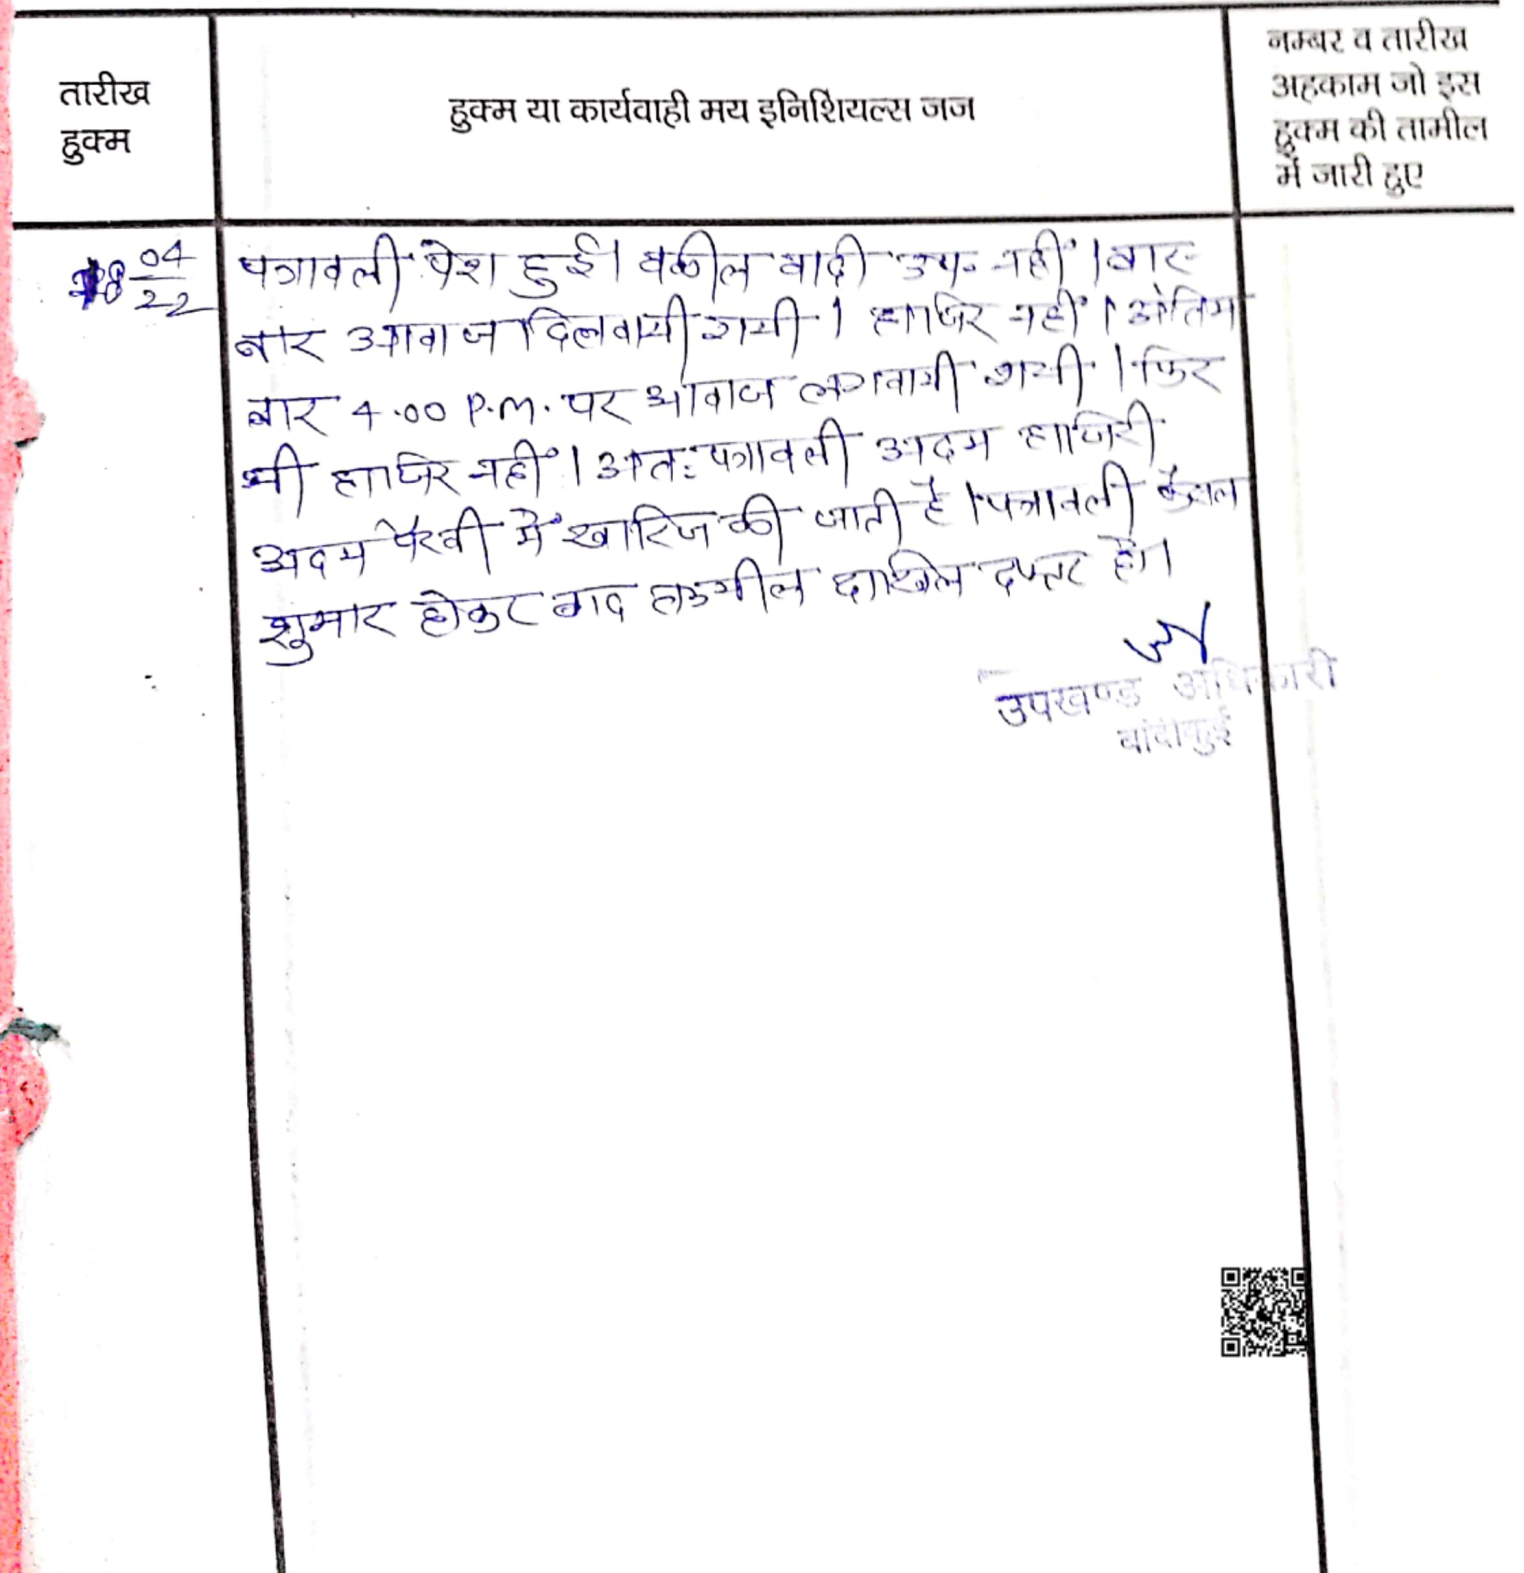 तारीख
हुक्म
हुक्म या कार्यवाही मय इनिशियल्स जज
नम्बर व तारीख
अहकाम जो इस
हुक्म की तामील
में जारी हुए
04
22
पत्रावली पेश हुई। वकील वादी उप. नहीं। बार-
बार आवाज दिलवायी गयी। हाजिर नहीं। अंतिम
बार 4.00 P.M. पर आवाज लगवायी गयी। फिर
भी हाजिर नहीं। अतः पत्रावली अदम हाजिरी
अदम पैरवी में खारिज की जाती है। पत्रावली फैसल
शुमार होकर बाद दाखिल दफ्तर हो।
उपखण्ड अधिकारी
बांदीकुई